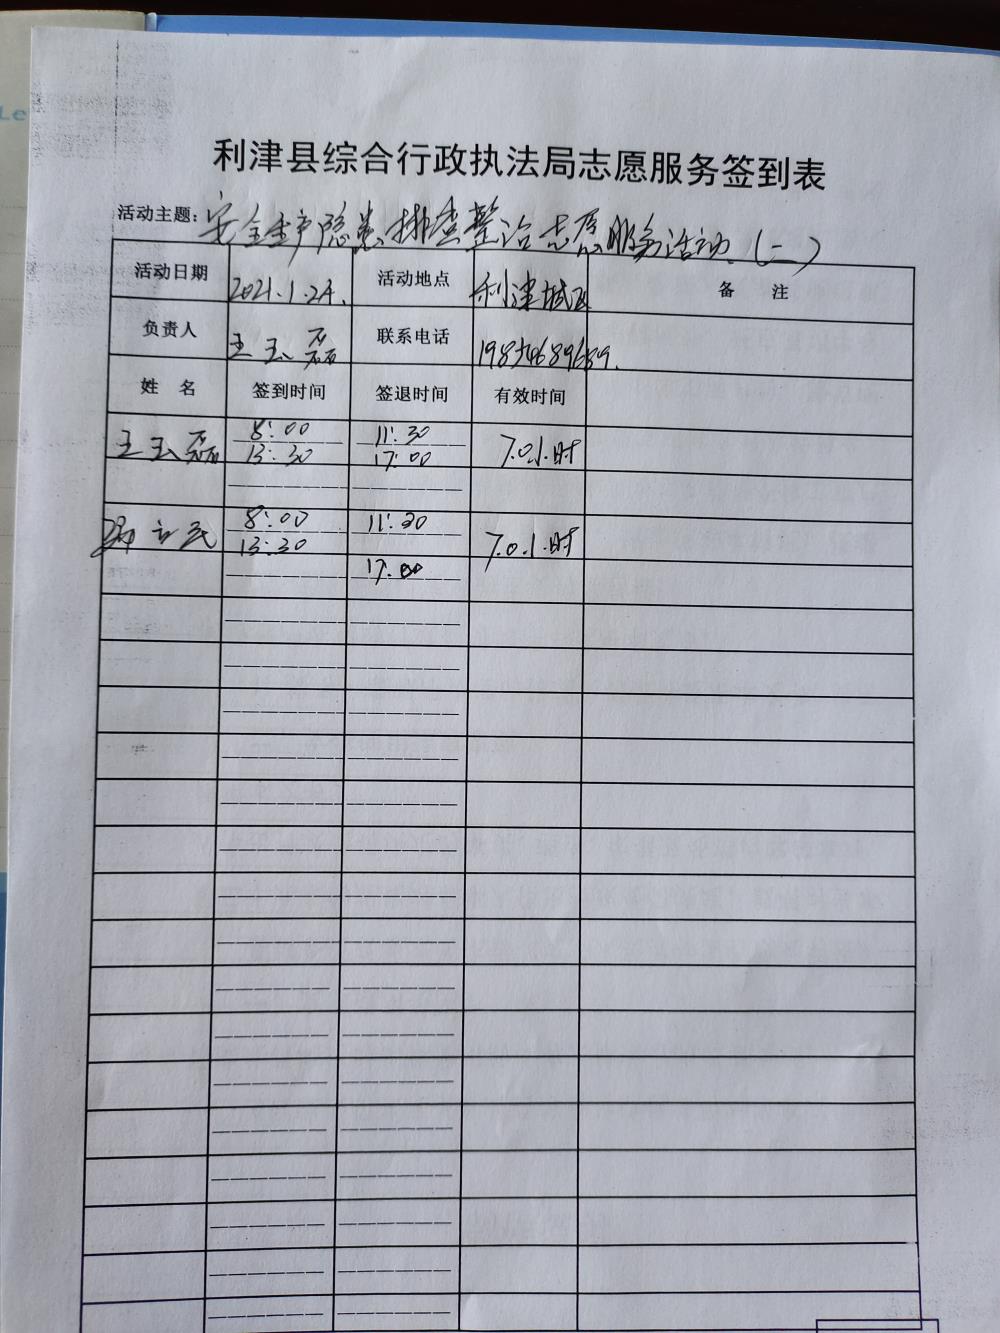 Le
利津县综合行政执法局志愿服务签到表
活动主题: 安全生产隐患排查整治志愿服务活动.(一)
活动日期 2021.1.24. 活动地点 利津城区 备 注
负责人 王玉磊 联系电话
姓 名 签到时间 签退时间 有效时间
王玉磊 8:00 11:30 7.0小时
13:30 17:00
8:00 11:30 7.0小时
13:30
17:00